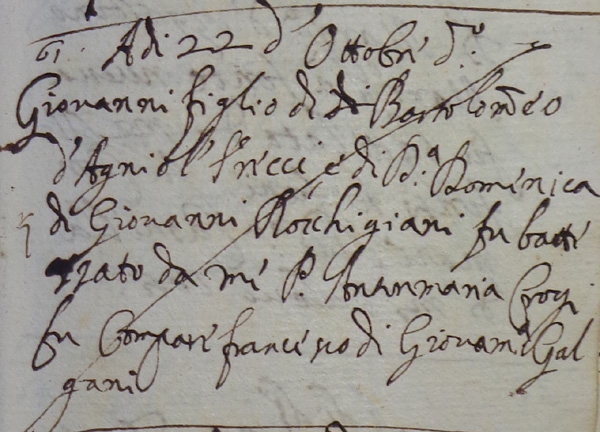 61. Adi 22 d' Ottobre d.º
Giovanni figlio di di Bartolomeo
d'Agniol' Frecci e di D.ª Domenica
di Giovanni Rocchigiani fu batte
zzato da me P. Antonmaria
fu Compare francesco di Giovani Gal
gani